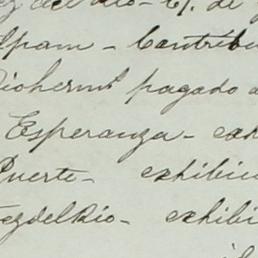 del Rio - 
lpam - Contribu
pagado
Esperanza - exh
Puerte - exhibic
ezdelRio - exhibi